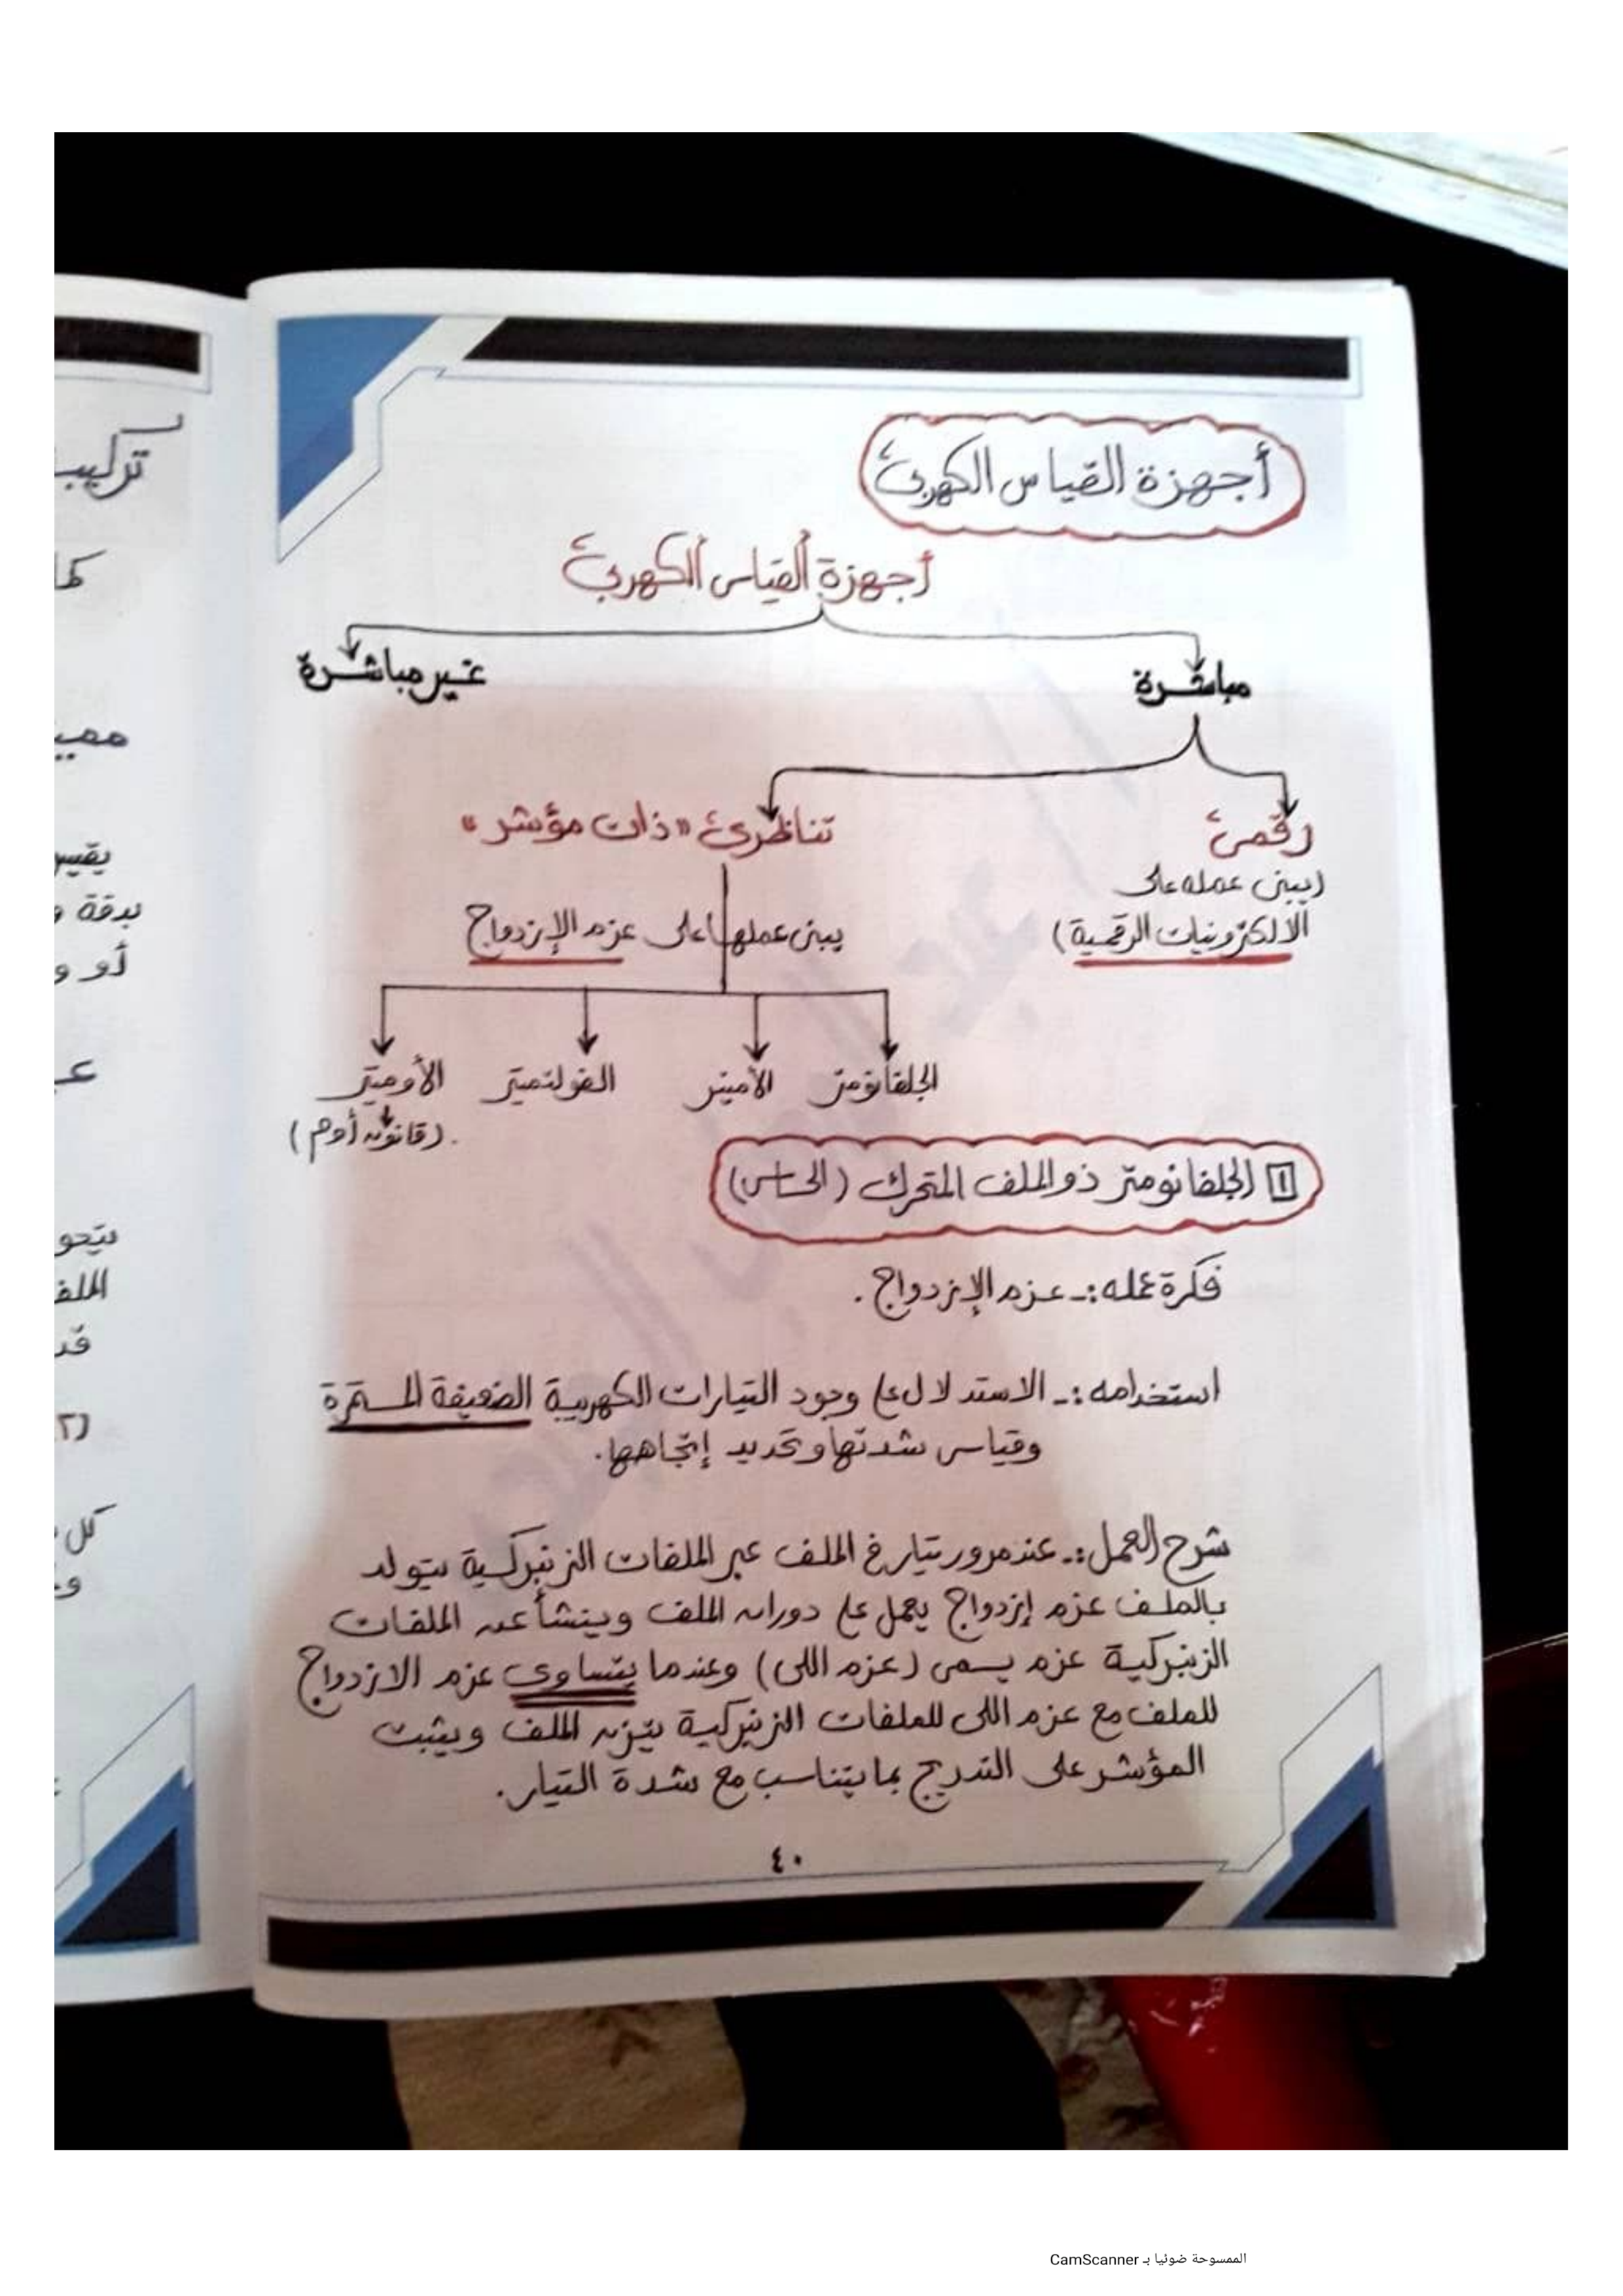 أجهزة القياس الكهربى
أجهزة القياس الكهربى
مباشرة
غير مباشرة
رقمى
تناظرى "ذات مؤشر"
(يبنى عمله على
الالكترونيات الرقمية)
يبنى عملها على عزم الإزدواج
الجلفانومتر
الأميتر
الفولتميتر
الأوميتر
(قانون أوم)
١ الجلفانومتر ذو الملف المتحرك (الحساس)
فكرة عمله:- عزم الإزدواج.
استخدامه:- الاستدلال على وجود التيارات الكهربية الضعيفة المستمرة
وقياس شدتها وتحديد إتجاهها.
شرح العمل:- عند مرور تيار فى الملف عبر الملفات الزنبركية يتولد
بالملف عزم إزدواج يعمل على دوران الملف وينشأ عن الملفات
الزنبركية عزم يسمى (عزم اللى) وعندما يتساوى عزم الازدواج
للملف مع عزم اللى للملفات الزنبركية يتزن الملف ويثبت
المؤشر على التدريج بما يتناسب مع شدة التيار.
٤٠
الممسوحة ضوئيا بـ CamScanner